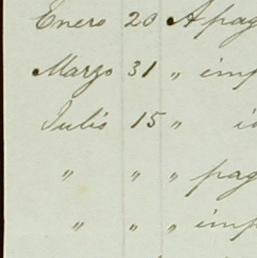 Enero 20 A pag
Marzo 31 " imp
Julio 15 " id
" " " pag
" " " imp